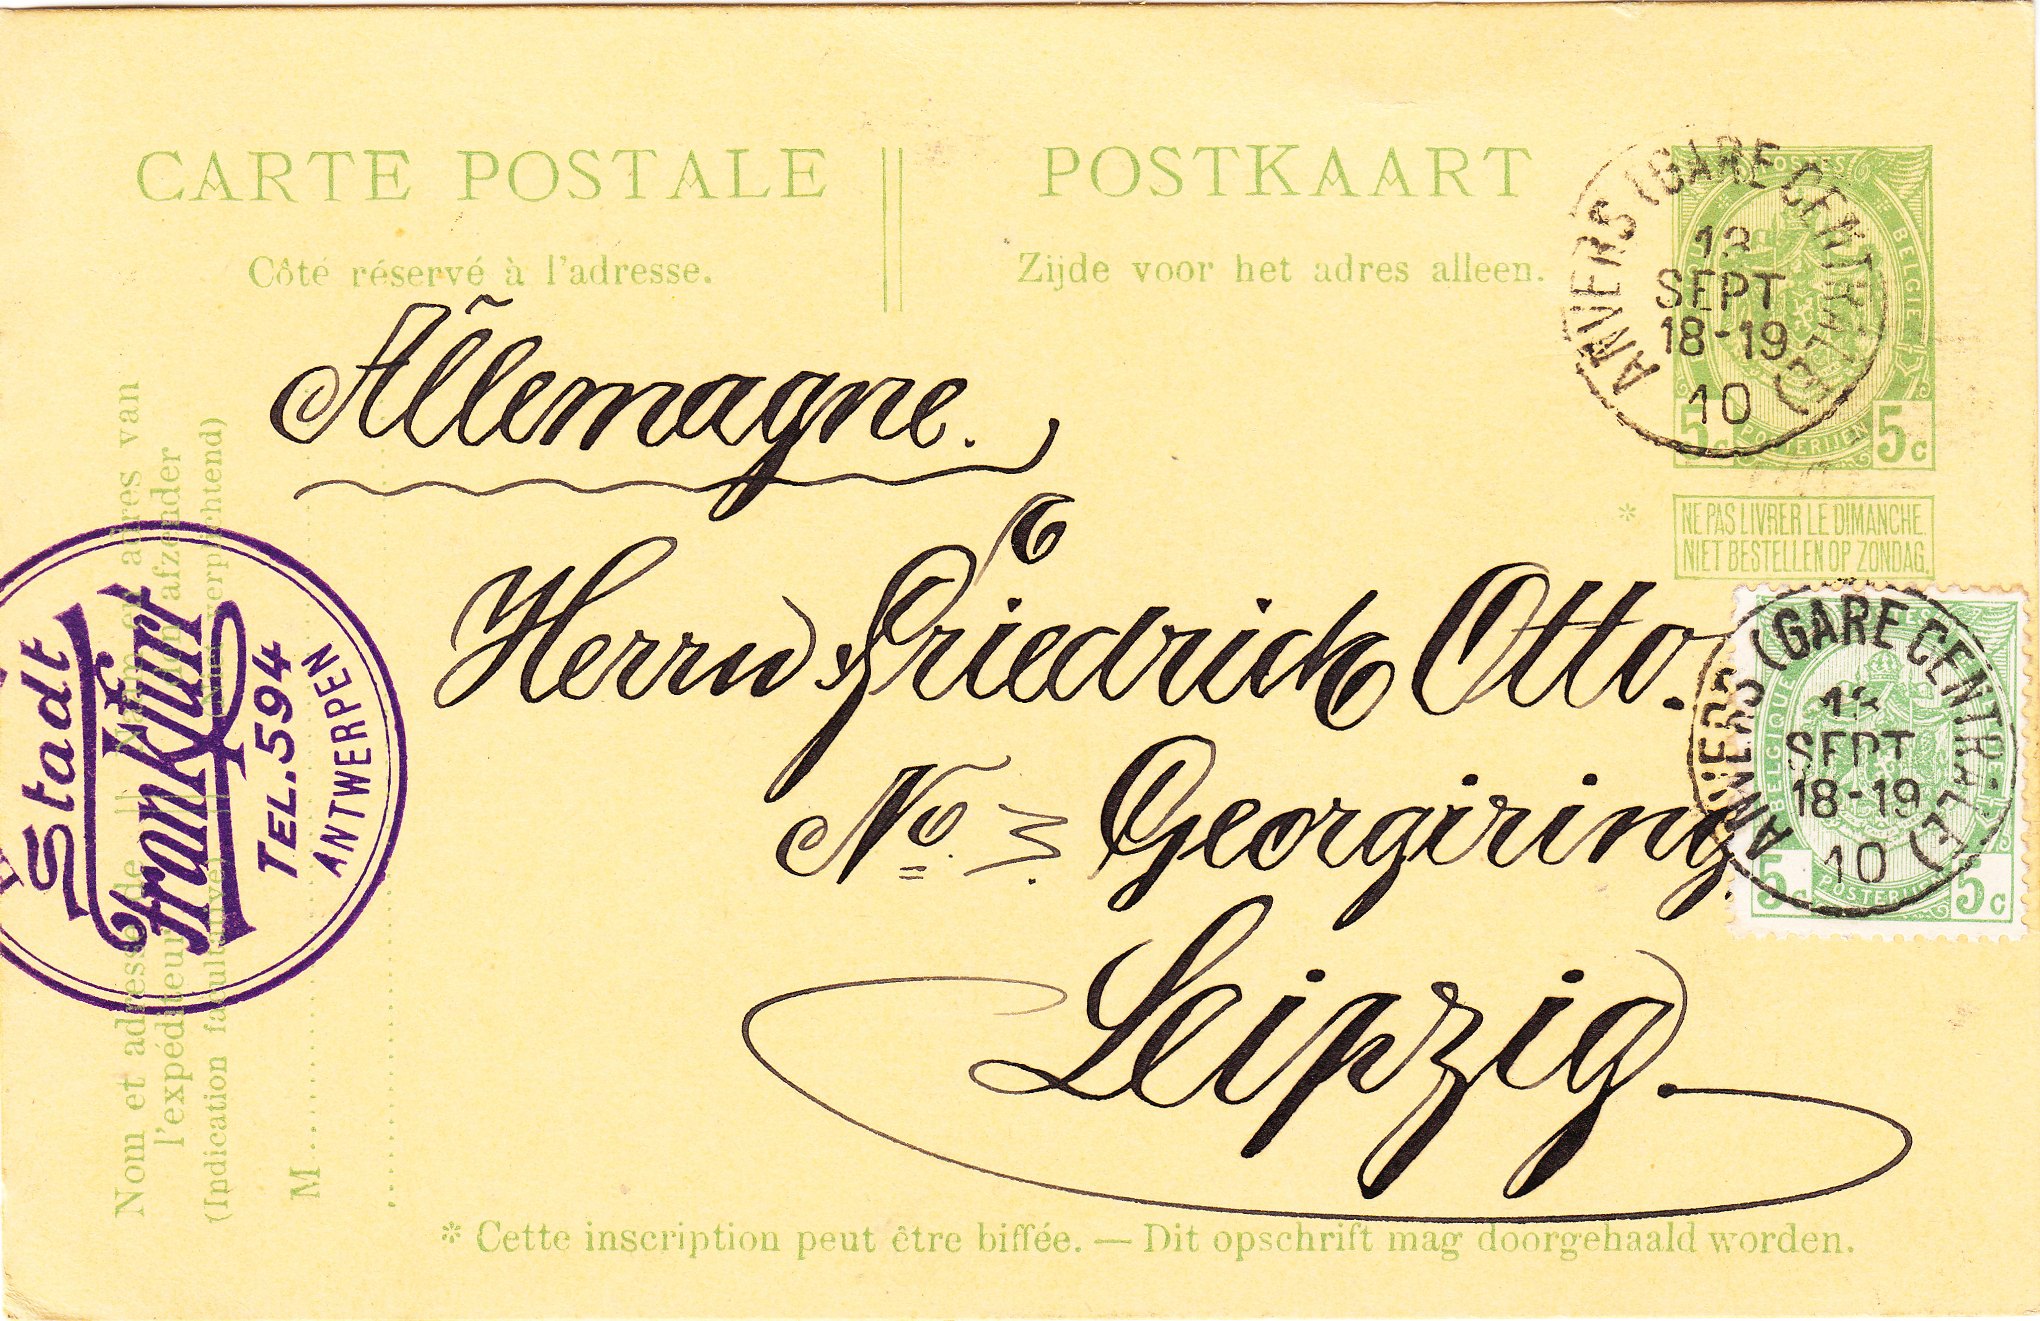 CARTE POSTALE
POSTKAART
Côté réservé à l'adresse.
Zijde voor het adres alleen.
POSTES
BELGIE
5c 5c
POSTERIJEN
ANVERS (GARE CENTRALE)
13
SEPT
18-19
10
* NE PAS LIVRER LE DIMANCHE.
NIET BESTELLEN OP ZONDAG.
Allemagne.
Herrn Friedrich Otto.
No. 3. Georgiring
Leipzig.
BELGIQUE
5c 5c
POSTERIJEN
ANVERS (GARE CENTRALE)
13
SEPT
18-19
10
Stadt
Frankfurt
TEL. 594
ANTWERPEN
Nom et adresse de || Naam en adres van
l'expéditeur || den afzender
(Indication facultative) || (Niet verplichtend)
M
* Cette inscription peut être biffée. — Dit opschrift mag doorgehaald worden.